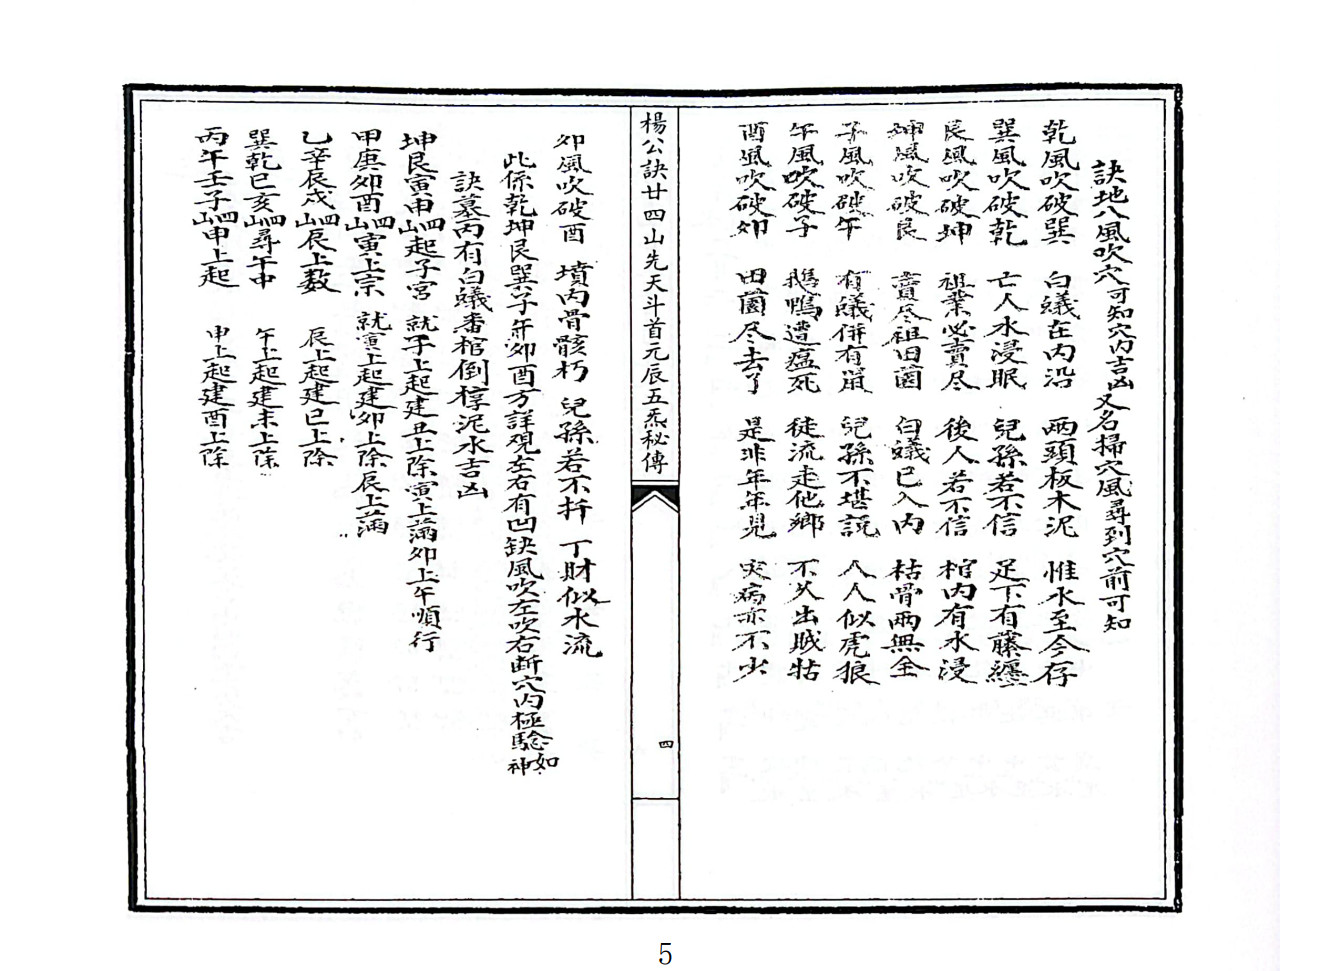 訣地八風吹穴可知穴内吉凶又名掃穴風尋到穴前可知
乾風吹破巽 白蟻在内沿 兩頭板木泥 惟水至今存
巽風吹破乾 亡人水浸眠 兒孫若不信 足下有藤纏
艮風吹破坤 祖業必賣尽 後人若不信 棺内有水浸
坤風吹破艮 賣尽祖田園 白蟻已入内 枯骨兩無全
子風吹破午 有蟻併有鼠 兒孫不堪説 人人似虎狼
午風吹破子 鵝鴨遭瘟死 徒流走他鄉 不久出賊牯
酉風吹破卯 田園尽去了 是非年年見 灾病亦不少
楊公訣廿四山先天斗首元辰五炁秘傳
四
卯風吹破酉 墳内骨骸朽 兒孫若不扦 丁財似水流
此係乾坤艮巽子午卯酉方詳观左右有凹缺風吹左吹右断穴内極騐如神
訣墓内有白蟻番棺倒椁泥水吉凶
坤艮寅申四山起子宮 就子上起建丑上除寅上滿卯上午順行
甲庚卯酉四山寅上宗 就寅上起建卯上除辰上滿
乙辛辰戌四山辰上数 辰上起建巳上除
巽乾巳亥四山尋午中 午上起建未上除
丙午壬子四山申上起 申上起建酉上除
5